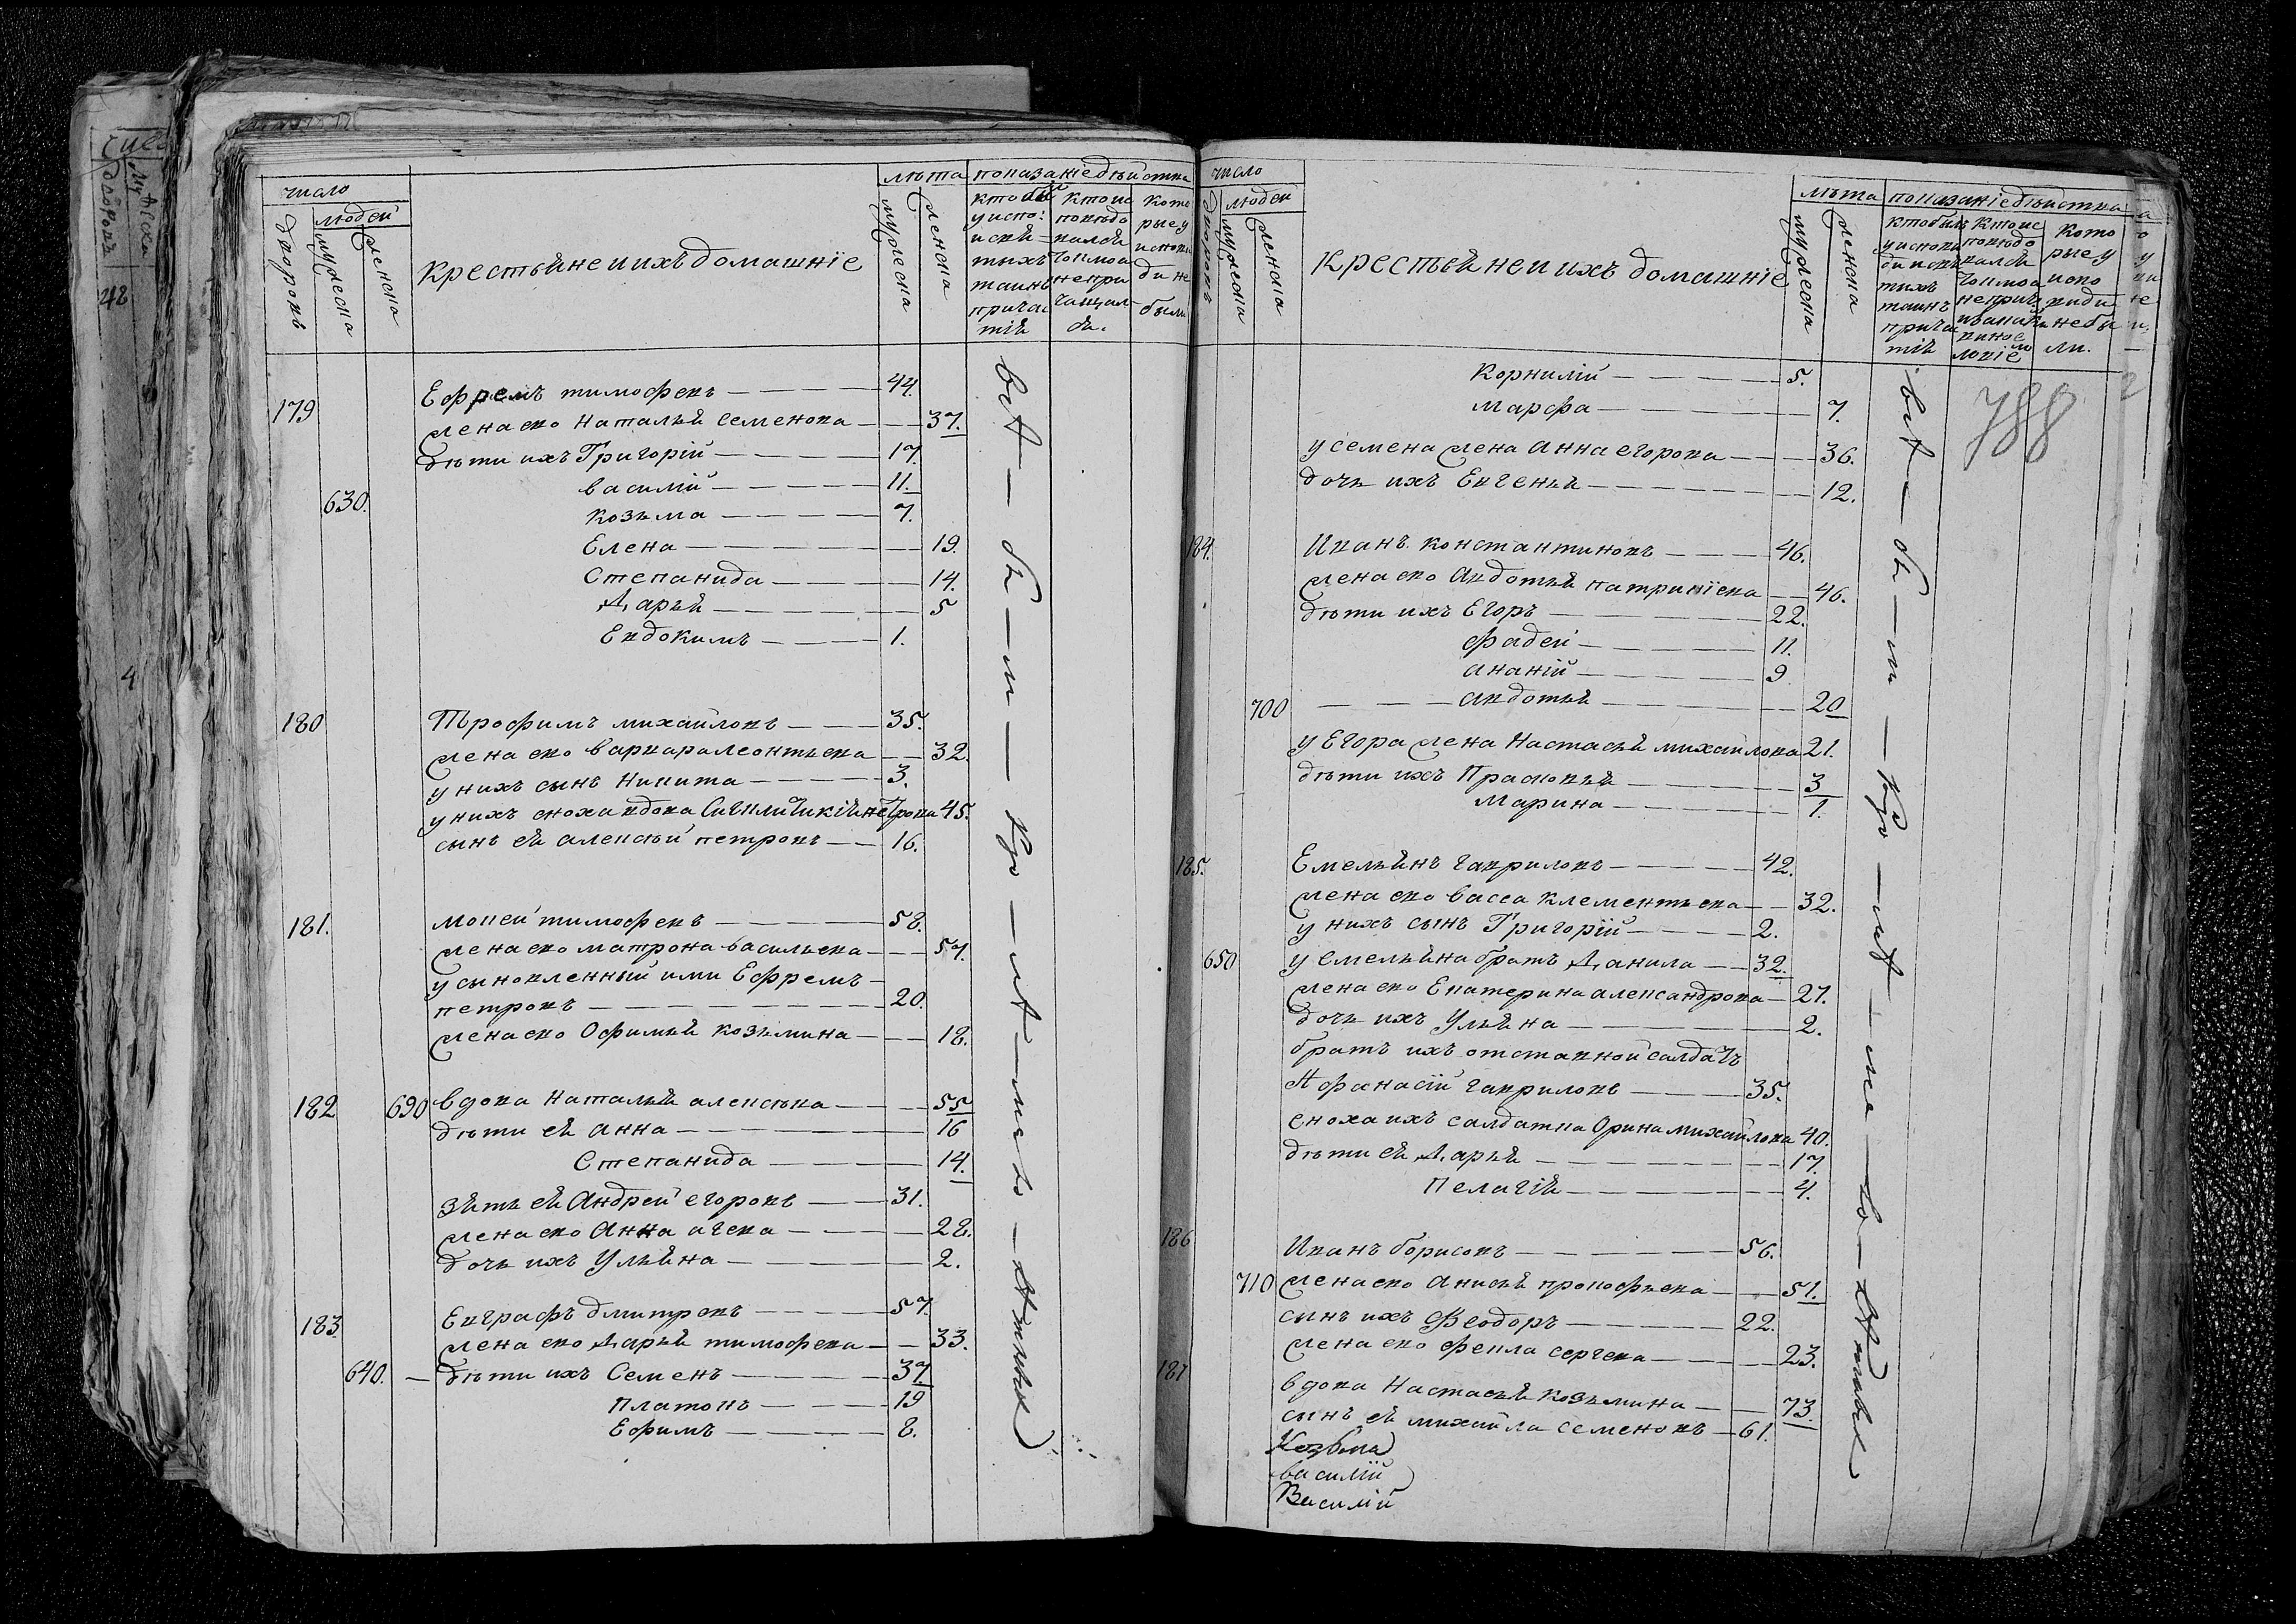 число
людей
дворовъ
мужеска
женска
крестьяне и ихъ домашніе
лѣта
мужеска
женска
показаніе дѣйства
кто былъ у испо: и свя= тыхъ таинъ причас тія
кто ис повѣдо вался токмо а непри чащал ся.
кото рые у исповѣ ди не были
179
Ефремъ тимофевъ — 44.
жена ево Наталья Семенова — 37.
дѣти ихъ Григорій — 17.
василій — 11.
630.
козьма — 7.
Елена — 19.
Степанида — 14.
Дарья — 5
Евдокимъ — 1.
180
Трофимъ михайловъ — 35.
жена ево варвара леонтьева — 32.
у нихъ сынъ Никита — 3.
у нихъ сноха вдова петрова 45.
сынъ ея алексѣй петровъ — 16.
181.
мокей тимофевъ — 58.
жена ево матрона васильева — 57.
усыновленный ими Ефремъ
петровъ — 20.
жена ево Офимья козьмина — 18.
182 690 вдова Наталья алексѣва — 55
дѣти ея анна — 16
Степанида — 14.
зять ея Андрей егоровъ — 31.
жена ево Анна агева — 28.
дочь ихъ Ульяна — 2.
183
Евграфъ дмитревъ — 57.
жена ево Дарья тимофева — 33.
640. — дѣти ихъ Семенъ — 37
Платонъ — 19
Ефимъ — 8.
число
людей
дворовъ
мужеска
женска
крестьяне и ихъ домашніе
лѣта
мужеска
женска
показаніе дѣйства
кото рые у испо веди не бы ли.
788
Корнилій — 5.
Марфа — 7.
у семена жена Анна егорова — 36.
дочь ихъ Евгенья — 12.
184.
Иванъ константиновъ — 46.
жена ево Авдотья патрикіева — 46.
дѣти ихъ Егоръ — 22.
Фадей — 11.
Ананій — 9
700 — Авдотья — 20
у Егора жена Настасья михайлова 21.
дѣти ихъ Прасковья — 3
Марина — 1.
185.
Емельянъ гавриловъ — 42.
жена ево васса клементьева — 32.
у нихъ сынъ Григорій — 2.
650 у емельяна братъ Данила — 32.
жена ево Екатерина александрова — 27.
дочь ихъ Ульяна — 2.
братъ ихъ отставной салдатъ
Афанасій гавриловъ — 35.
сноха ихъ салдатка Орина михайлова 40.
дѣти ея Дарья — 17.
Пелагія — 4.
186
Иванъ борисовъ — 56.
710 жена ево Анисья прокофьева — 51.
сынъ ихъ Феодоръ — 22.
жена ево фекла сергева — 23.
187
вдова Настасья козьмина — 73.
сынъ ея михайла семеновъ — 61.
Козьма
василій
Василій